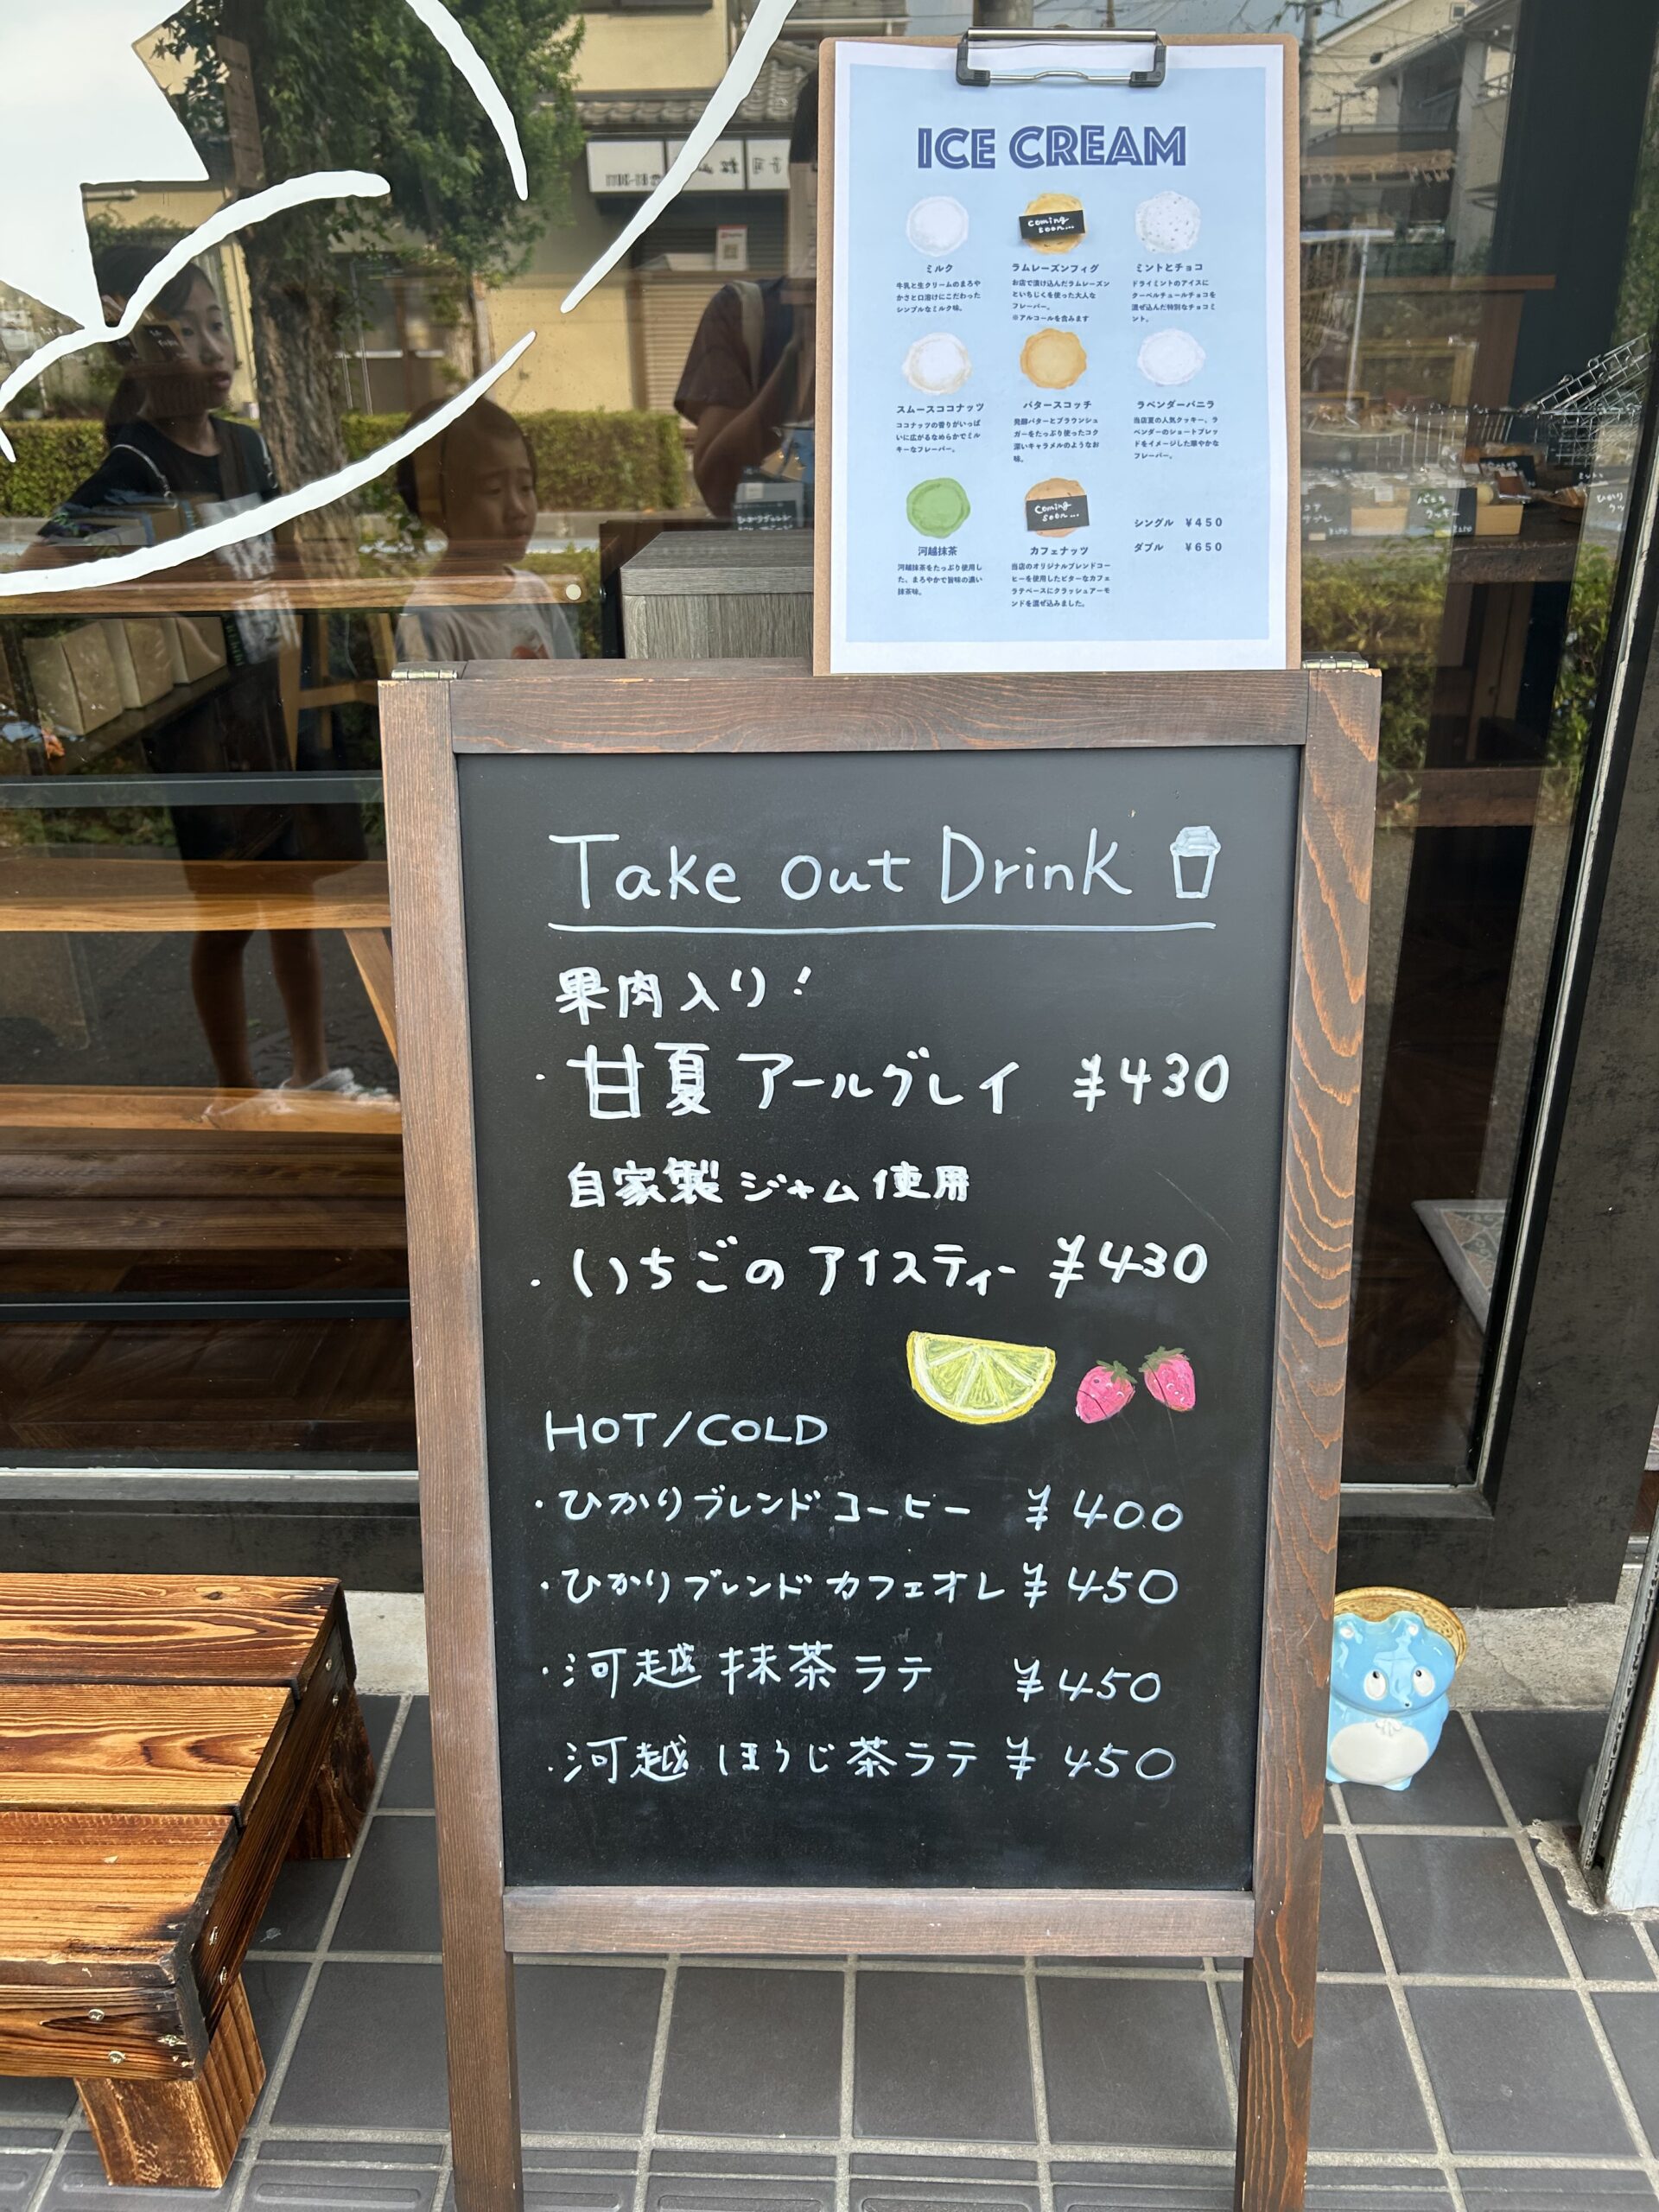 ICE CREAM
coming
soon...
ミルク
牛乳と生クリームのまろや
かさと口溶けにこだわった
シンプルなミルク味。
ラムレーズンフィグ
お店で漬け込んだラムレーズン
といちじくを使った大人な
フレーバー。
※アルコールを含みます
ミントとチョコ
ドライミントのアイスに
クーベルチュールチョコを
混ぜ込んだ特別なチョコミ
ント。
スムースココナッツ
ココナッツの香りがいっぱ
いに広がるなめらかでミル
キーなフレーバー。
バタースコッチ
発酵バターとブラウンシュ
ガーをたっぷり使ったコク
深いキャラメルのようなお
味。
ラベンダーバニラ
当店夏の人気クッキー、ラ
ベンダーのショートブレッ
ドをイメージした華やかな
フレーバー。
coming
soon...
河越抹茶
河越抹茶をたっぷり使用し
た、まろやかで旨味の濃い
抹茶味。
カフェナッツ
当店のオリジナルブレンドコー
ヒーを使用したビターなカフェ
ラテベースにクラッシュアーモ
ンドを混ぜ込みました。
シングル ¥450
ダブル ¥650
Take out Drink
果肉入り!
・甘夏アールグレイ ¥430
自家製ジャム使用
・いちごのアイスティー ¥430
HOT/COLD
・ひかりブレンドコーヒー ¥400
・ひかりブレンドカフェオレ ¥450
・河越抹茶ラテ ¥450
・河越ほうじ茶ラテ ¥450